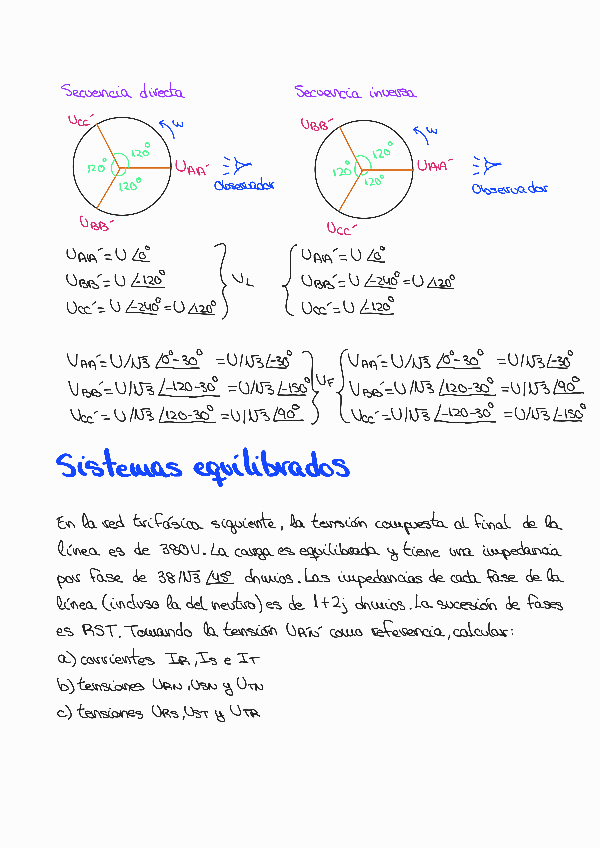 Secuencia directa
Secuencia inversa
Ucc´
w
120°
120°
120°
UAA´
Observador
UBB´
UBB´
w
120°
120°
120°
UAA´
Observador
Ucc´
UAA´= U ∠0°
UBB´= U ∠-120°
Ucc´= U ∠-240° = U ∠120°
UL
UAA´= U ∠0°
UBB´= U ∠-240° = U ∠120°
Ucc´= U ∠-120°
UAA´= U/√3 ∠0°-30° = U/√3 ∠-30°
UBB´= U/√3 ∠-120-30° = U/√3 ∠-150°
Ucc´= U/√3 ∠120-30° = U/√3 ∠90°
UF
UAA´= U/√3 ∠0°-30° = U/√3 ∠-30°
UBB´= U/√3 ∠120-30° = U/√3 ∠90°
Ucc´= U/√3 ∠-120-30° = U/√3 ∠-150°
Sistemas equilibrados
En la red trifásica siguiente, la tensión compuesta al final de la
línea es de 380V. La carga es equilibrada y tiene una impedancia
por fase de 38/√3 ∠45° ohmios. Las impedancias de cada fase de la
línea (incluso la del neutro) es de 1+2j ohmios. La sucesión de fases
es RST. Tomando la tensión UR´N´ como referencia, calcular:
a) corrientes IR, IS e IT
b) tensiones URN, USN y UTN
c) tensiones URS, UST y UTR